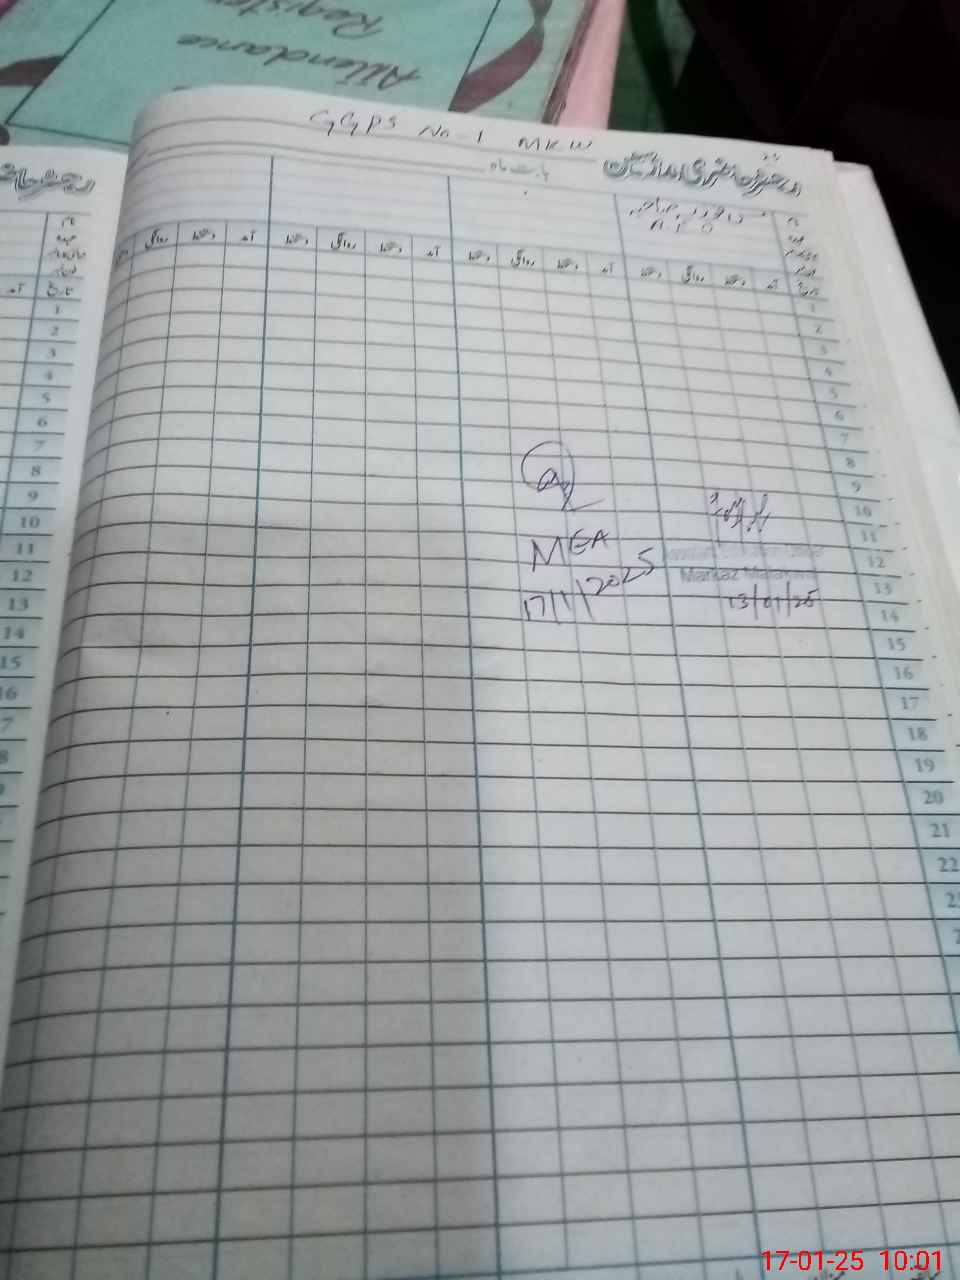 Attendance
Register
GGPS No-1 MKW
رجسٹر حاضری ملازمین
بابت ماہ
AEO
نام
عہدہ
تاریخ
آمد
دستخط
روانگی
دستخط
آمد
دستخط
روانگی
دستخط
آمد
دستخط
روانگی
دستخط
آمد
دستخط
روانگی
1
2
3
4
5
6
7
8
9
10
11
12
13
14
15
16
17
18
19
20
21
22
MEA
17/1/2025
Assistant Education Officer
Markaz Malakwal
13/01/25
1
2
3
4
5
6
7
8
9
10
11
12
13
14
15
16
17-01-25 10:01